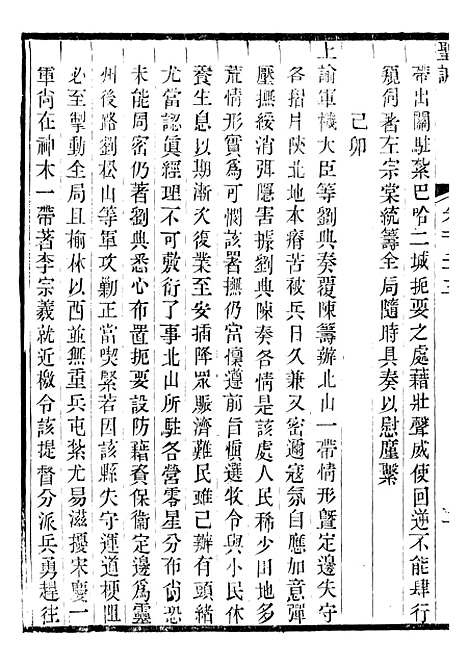 聖訓
帶出關駐紮巴哈二城扼要之處藉壯聲威使回逆不能肆行
窺伺著左宗棠統籌全局隨時具奏以慰廑繫
己卯
上諭軍機大臣等劉典奏覆陳籌辦北山一帶情形曁定邊失守
各摺片陝北地本瘠苦被兵日久兼又密邇寇氛自應加意彈
壓撫綏消弭隱害據劉典陳奏各情是該處人民稀少田地多
荒情形實爲可憫該署撫仍當懍遵前旨愼選牧令與小民休
養生息以期漸次復業至安插降眾賑濟難民雖已辦有頭緒
尤當認眞經理不可敷衍了事北山所駐各營零星分布尙恐
未能周密仍著劉典悉心布置扼要設防藉資保衞定邊爲靈
州後路劉松山等軍攻勦正當喫緊若因該縣失守運道梗阻
必至掣動全局且榆林以西並無重兵屯紮尤易滋擾宋慶一
軍尙在神木一帶著李宗羲就近檄令該提督分派兵勇趕往